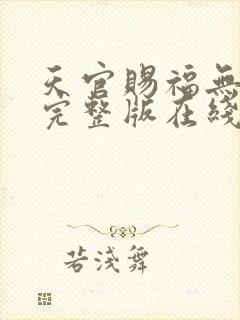 天官賜福無
完整版在綫
若淺舞